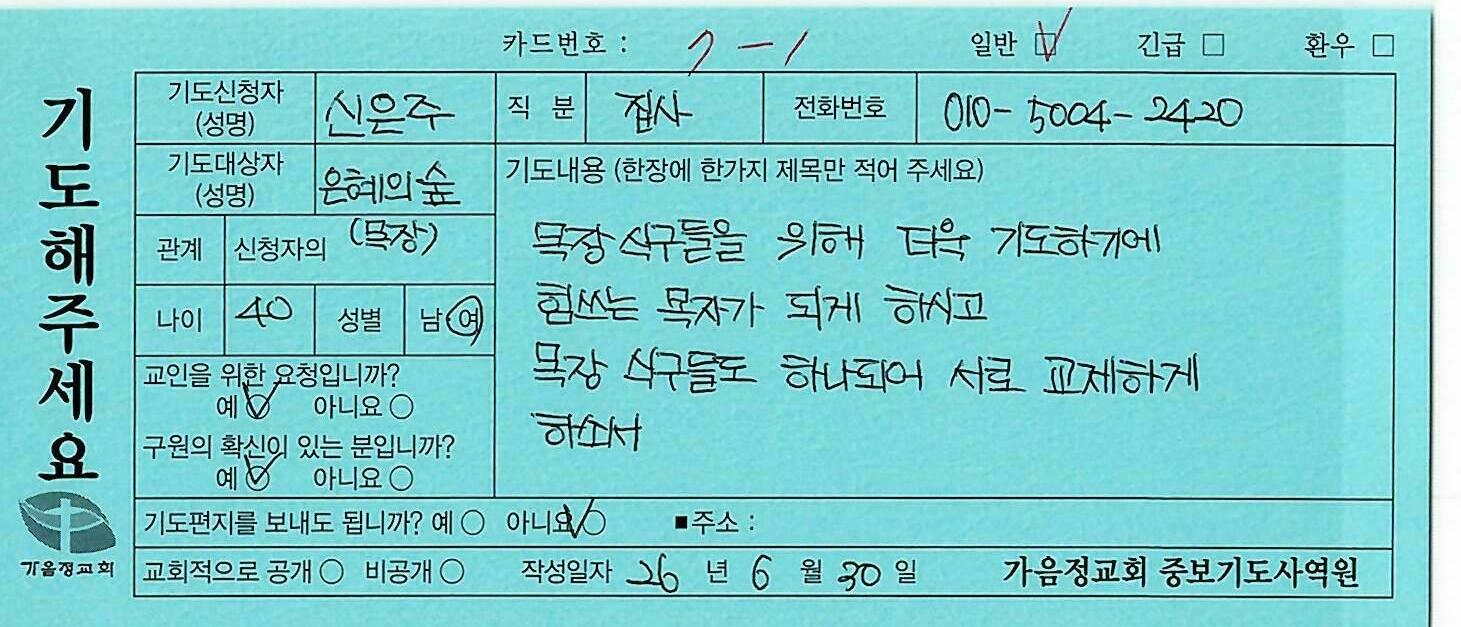 카드번호 : 7-1 일반 ☑ 긴급 □ 환우 □
기도해주세요
가음정교회
기도신청자 (성명) 신은주 직 분 집사 전화번호 010-5004-2420
기도대상자 (성명) 은혜의숲
관계 신청자의 (목장)
나이 40 성별 남 여
교인을 위한 요청입니까?
예 ○ 아니요 ○
구원의 확신이 있는 분입니까?
예 ○ 아니요 ○
기도내용 (한장에 한가지 제목만 적어 주세요)
목장 식구들을 위해 더욱 기도하기에
힘쓰는 목자가 되게 하시고
목장 식구들도 하나되어 서로 교제하게
하소서
기도편지를 보내도 됩니까? 예 ○ 아니요 ○ ■주소 :
교회적으로 공개 ○ 비공개 ○ 작성일자 26 년 6 월 30 일 가음정교회 중보기도사역원